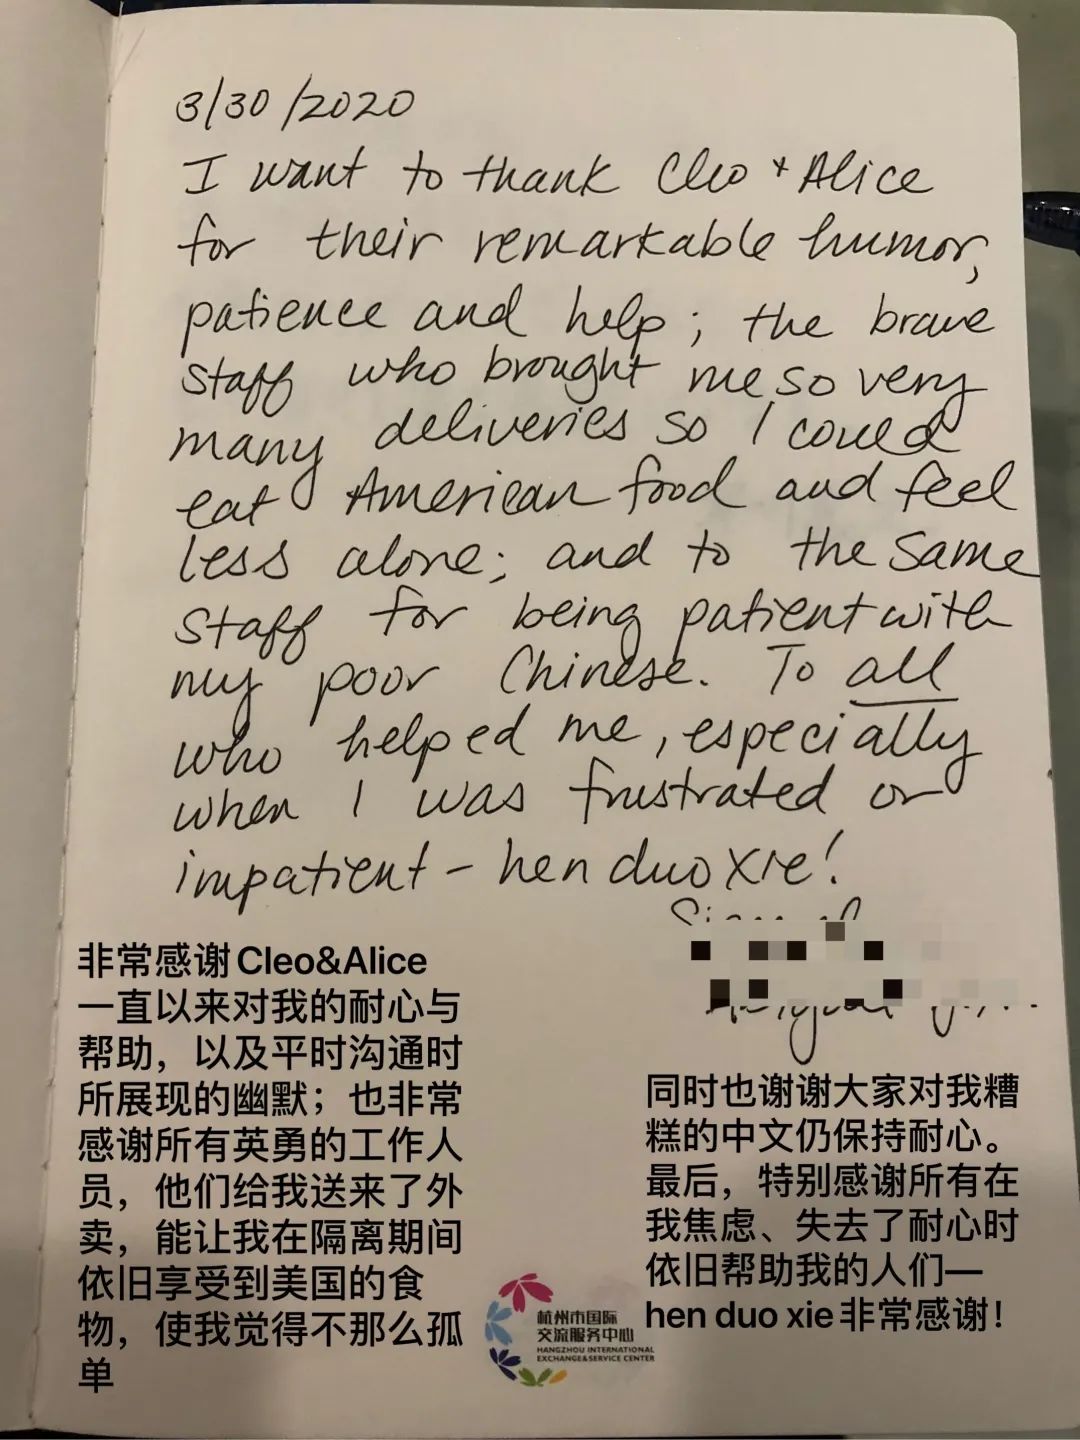 3/30/2020
I want to thank Cleo + Alice
for their remarkable humor,
patience and help; the brave
staff who brought me so very
many deliveries so I could
eat American food and feel
less alone; and to the same
staff for being patient with
my poor Chinese. To all
who helped me, especially
when I was frustrated or
impatient - hen duo xie!
非常感谢Cleo&Alice
一直以来对我的耐心与
帮助，以及平时沟通时
所展现的幽默；也非常
感谢所有英勇的工作人
员，他们给我送来了外
卖，能让我在隔离期间
依旧享受到美国的食
物，使我觉得不那么孤
单
同时也谢谢大家对我糟
糕的中文仍保持耐心。
最后，特别感谢所有在
我焦虑、失去了耐心时
依旧帮助我的人们—
hen duo xie非常感谢！
杭州市国际
交流服务中心
HANGZHOU INTERNATIONAL
EXCHANGE&SERVICE CENTER